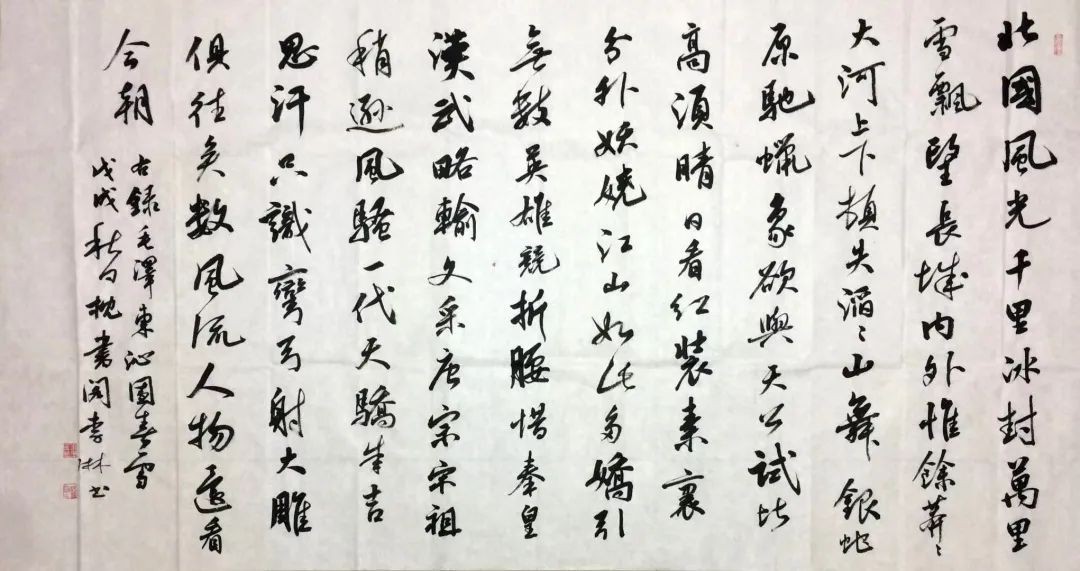 北國風光千里冰封萬里
雪飄望長城内外惟餘莽〻
大河上下頓失滔〻山舞銀蛇
原馳蠟象欲與天公試比
高須晴日看紅裝素裹
分外妖嬈江山如此多嬌引
無數英雄競折腰惜秦皇
漢武略輸文采唐宗宋祖
稍遜風騷一代天驕成吉
思汗只識彎弓射大雕
俱往矣数風流人物還看
今朝
右錄毛澤東沁園春雪
戊戌秋月枕書閣李淋书